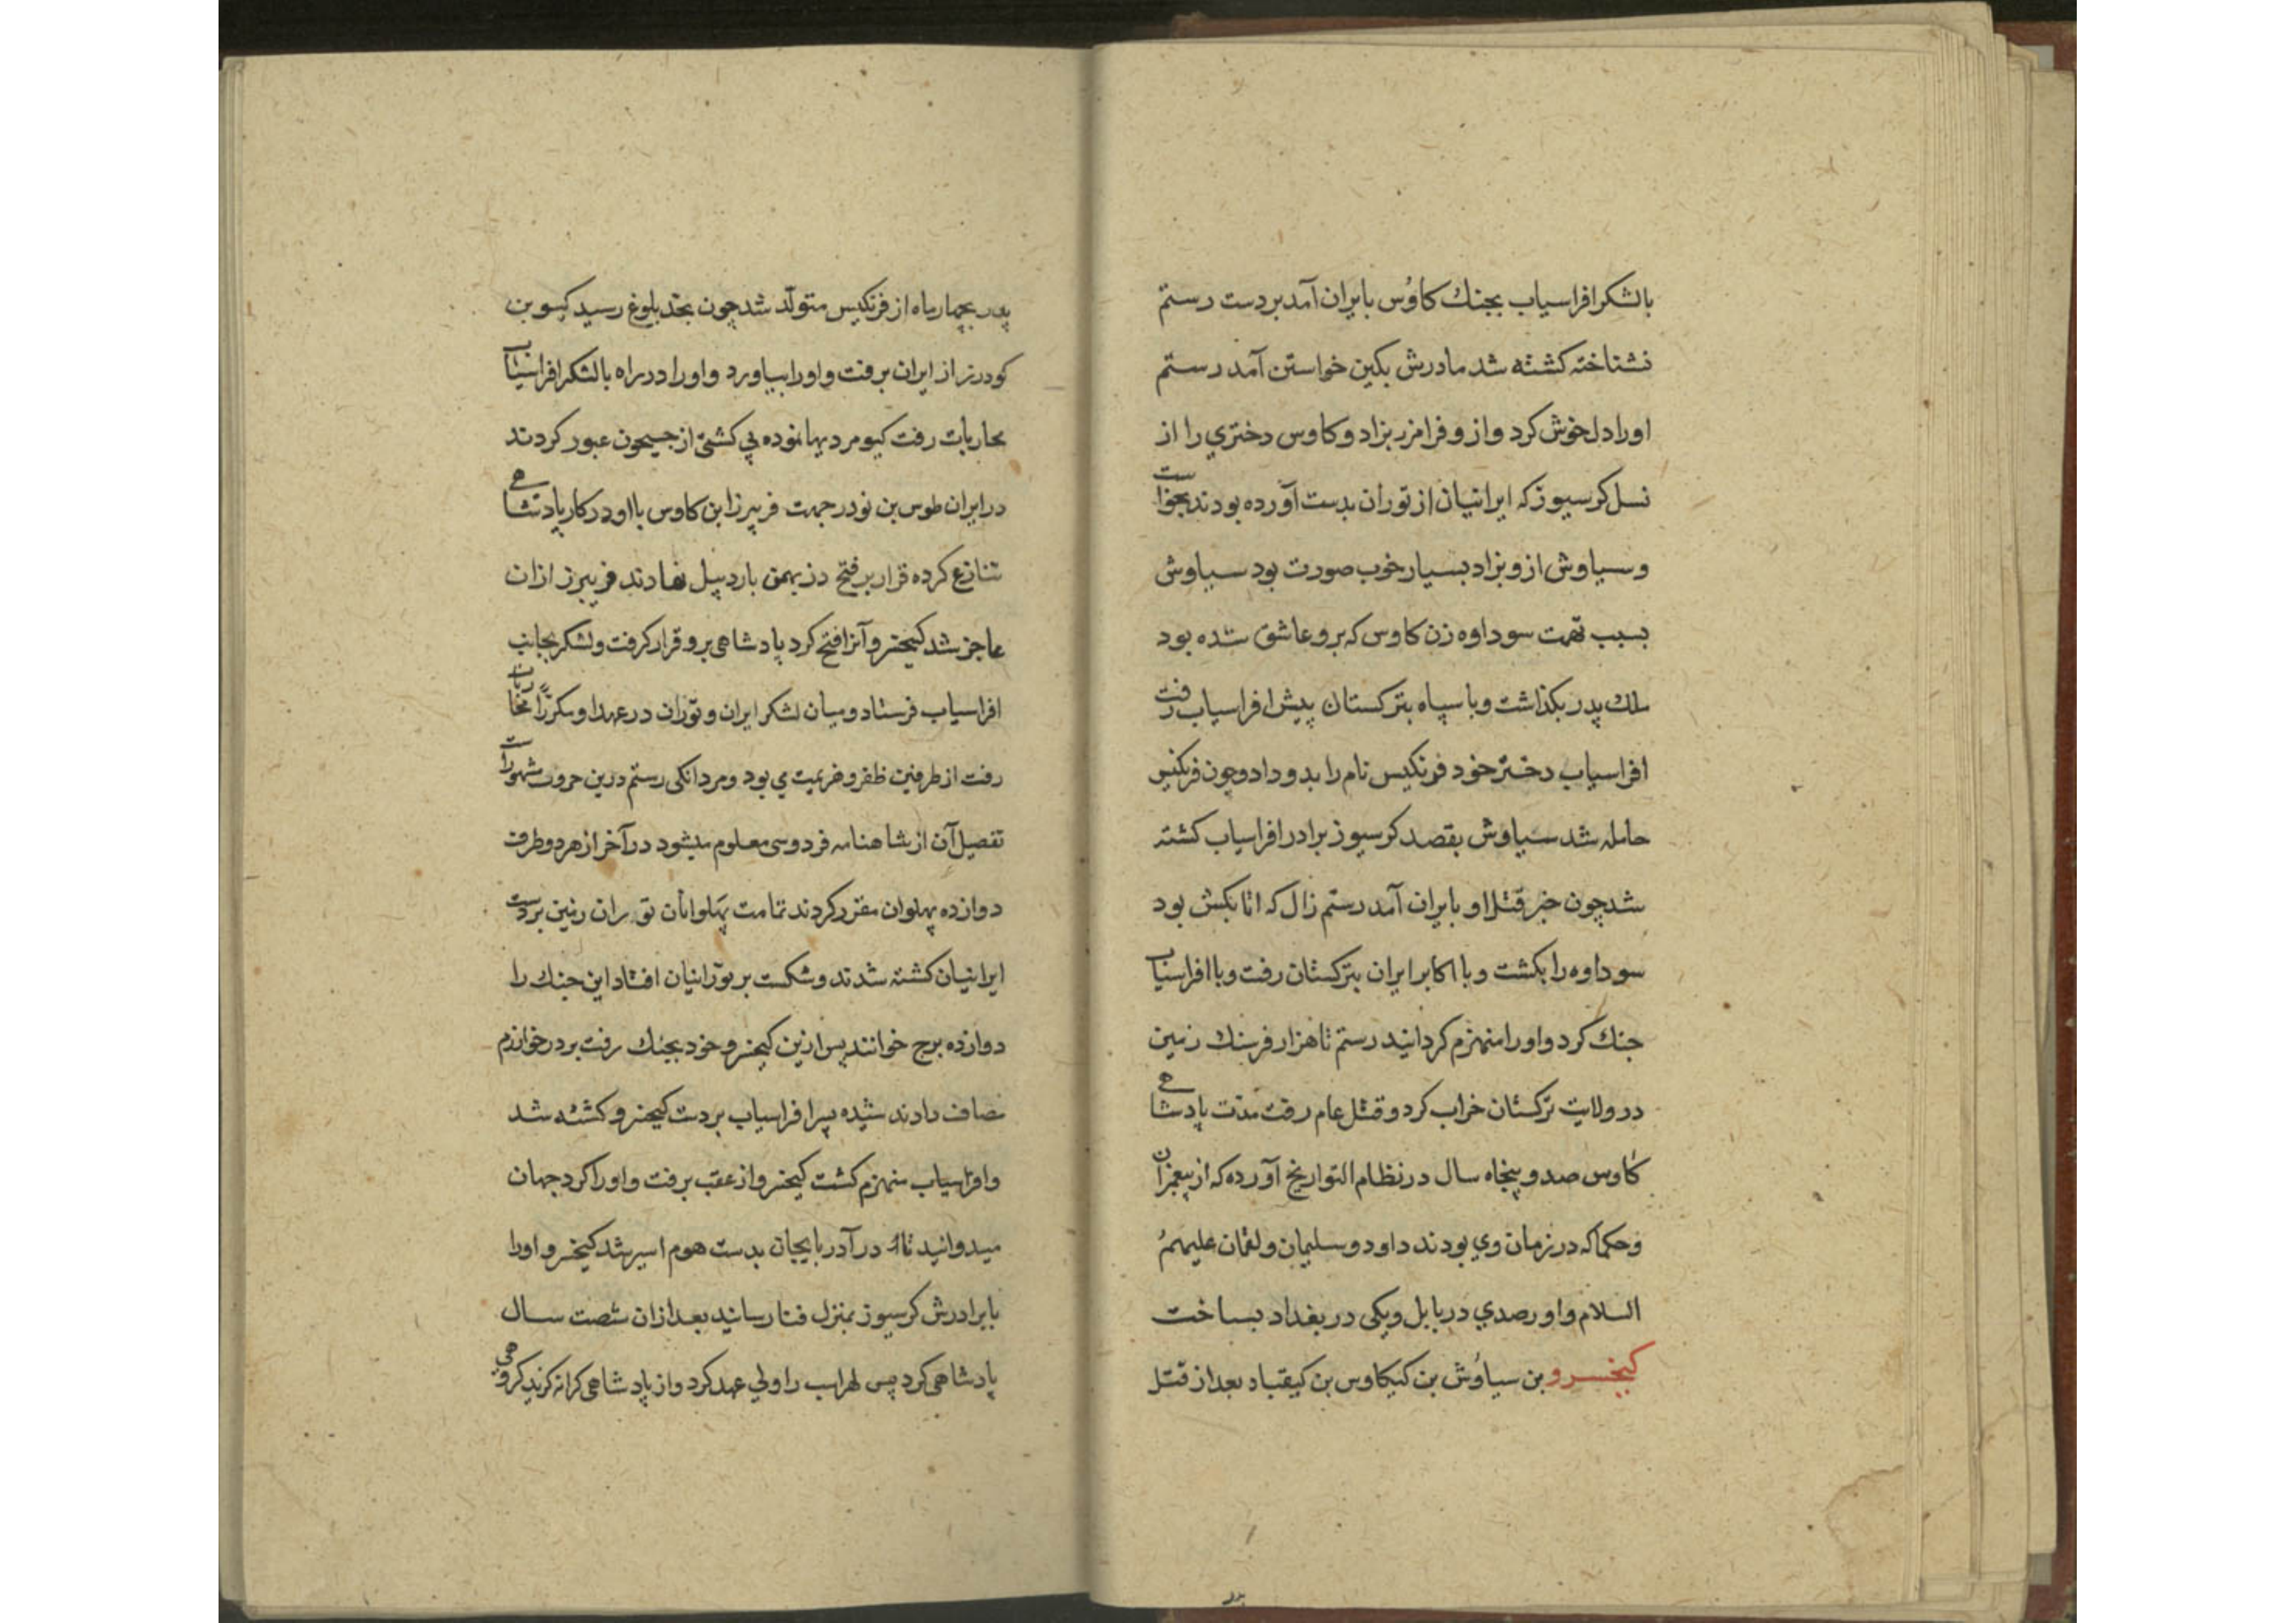 بالشکر افراسیاب بجنك کاوُس بایران آمد بر دست رستم
نشناخته کشته شد مادرش بکین خواستن آمد رستم
اورا دلخوش کرد و ازو فرامرز بزاد و کاوس دختری را از
نسل کرسیوز که ایرانیان از توران بدست آورده بودند بخواست
و سیاوش ازو بزاد بسیار خوب صورت بود سیاوش
بسبب تهمت سوداوه زن کاوس که برو عاشق شده بود
ملك پدر بکذاشت و با سپاه بترکستان پیش افراسیاب رفت
افراسیاب دختر خود فرنکیس نام را بدو داد و چون فرنکیس
حامله شد سیاوش بقصد کرسیوز برادر افراسیاب کشته
شد چون خبر قتل او بایران آمد رستم زال که اتابکش بود
سوداوه را بکشت و با اکابر ایران بترکستان رفت و با افراسیاب
جنك کرد و اورا منهزم کردانید رستم تا هزار فرسنك زمین
در ولایت ترکستان خراب کرد و قتل عام رفت مدّت پادشاهی
کاوس صد و پنجاه سال در نظام التواریخ آورده که از پیغمبران
و حکما که در زمان وی بودند داود و سلیمان و لقمان علیهم
السلام و او رصدی در بابل و یکی در بغداد بساخت
کیخسرو بن سیاوُش بن کیکاوس بن کیقباد بعد از قتل
پدر بچهار ماه از فرنکیس متولّد شد چون بحّد بلوغ رسید کیو بن
کودرز از ایران برفت و اورا بیاورد و اورا در راه بالشکر افراسیاب
محاربات رفت کیو مردیها نموده بی کشتی از جیحون عبور کردند
در ایران طوس بن نوذر جهت فریبرز ابن کاوس با او در کار پادشاهی
تنازع کرده قرار بر فتح دز بهمن باردبیل نهادند فریبرز ازان
عاجز شد کیخسرو آنرا فتح کرد پادشاهی برو قرار کرفت و لشکر بجانب
افراسیاب فرستاد و میان لشکر ایران و توران در عهد او مکرّراً محاربات
رفت از طرفین ظفر و هزیمت می بود و مردانکی رستم درین حروب مشهورست
تفصیل آن از شاهنامه فردوسی معلوم میشود در آخر از هر دو طرف
دوازده پهلوان مقرر کردند تمامت پهلوانان توران زمین بردست
ایرانیان کشته شدند و شکست بر تورانیان افتاد این جنك را
دوازده برج خوانند پس ازین کیخسرو خود بجنك رفت بر در خوارزم
مصاف دادند شیده پسر افراسیاب بر دست کیخسرو کشته شد
و افراسیاب منهزم کشت کیخسرو از عقب برفت و اورا کرد جهان
میدوانید تا در آدربایجان بدست هوم اسیر شد کیخسرو اورا
با برادرش کرسیوز بمنزل فنا رسانید بعد ازان شصت سال
پادشاهی کرد پس لهراسب را ولی عهد کرد و از پادشاهی کرانه کزید کروهی